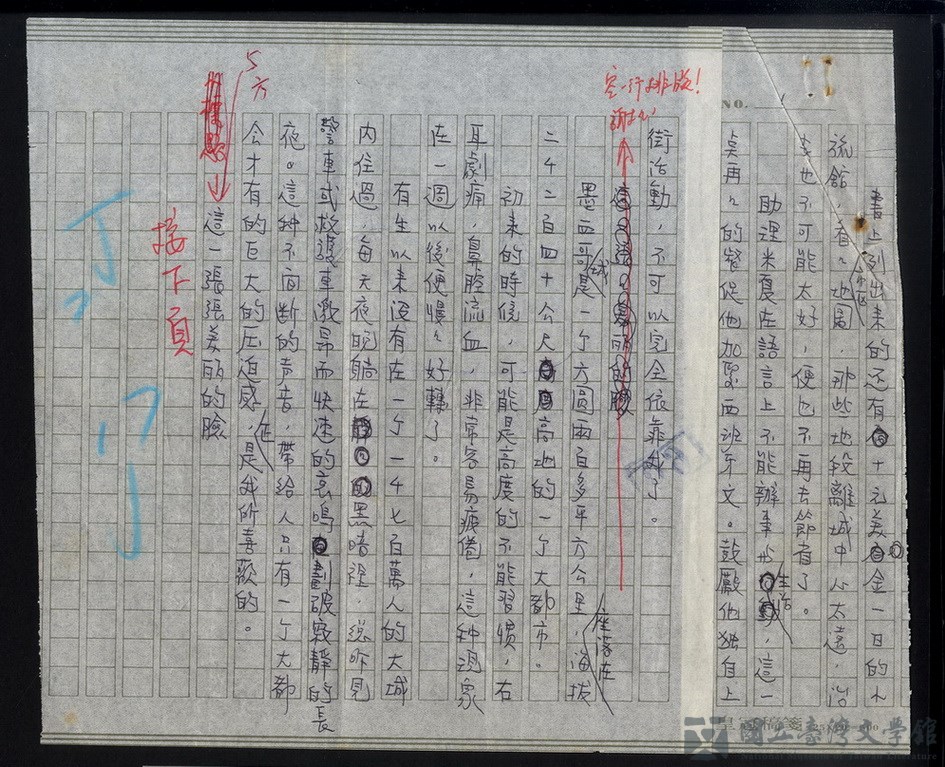 書上列出來的還有十元美金一日的小
旅館,看看地圖,那些地段離城中心太遠,治
安也不可能太好,便也不再去節省了。
助理米夏在語言上不能辦事,這一
點再再的督促他加緊西班牙文。鼓勵他獨自上
街活動,不可以完全依靠我了。
空一行排版!
謝謝
墨西哥城是一個方圓兩百多平方公里,座落在海拔
二千二百四十公尺高地的一個大都市。
初來的時候,可能是高度的不能習慣,右
耳劇痛,鼻腔流血,非常容易疲倦,這種現象
在一週以後便慢慢好轉了。
有生以來沒有在一個一千七百萬人的大城
內住過,每天夜晚躺在黑暗裡,總聽見
警車或救護車激昂而快速的哀鳴劃破寂靜的長
夜。這種不間斷的声音,帶給人只有一個大都
会才有的巨大的压迫感,是我所喜歡的。
5方
這一張張美丽的臉
接下頁
NO.
皇冠稿箋
國立臺灣文學館
National Museum of Taiwan Literature